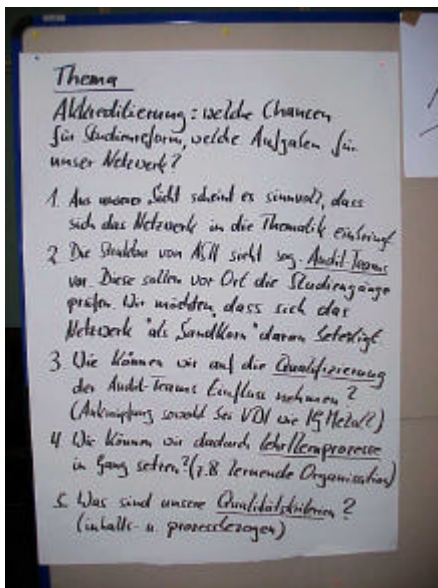 Thema
Akkreditierung: welche Chancen
für Studienreform, welche Aufgaben für
unser Netzwerk?
1. Aus unserer Sicht scheint es sinnvoll, dass
sich das Netzwerk in die Thematik einbringt
2. Die Struktur von ASII sieht sog. Audit-Teams
vor. Diese sollen vor Ort die Studiengänge
prüfen. Wir möchten, dass sich das
Netzwerk "als Sandkorn" daran beteiligt.
3. Wie können wir auf die Qualifizierung
der Audit-Teams Einfluss nehmen?
(Anknüpfung sowohl bei VDI wie IG Metall)
4. Wie können wir dadurch Lehr/Lernprozesse
in Gang setzen? (z.B. lernende Organisation)
5. Was sind unsere Qualitätskriterien?
(inhalts- u. prozessbezogen)